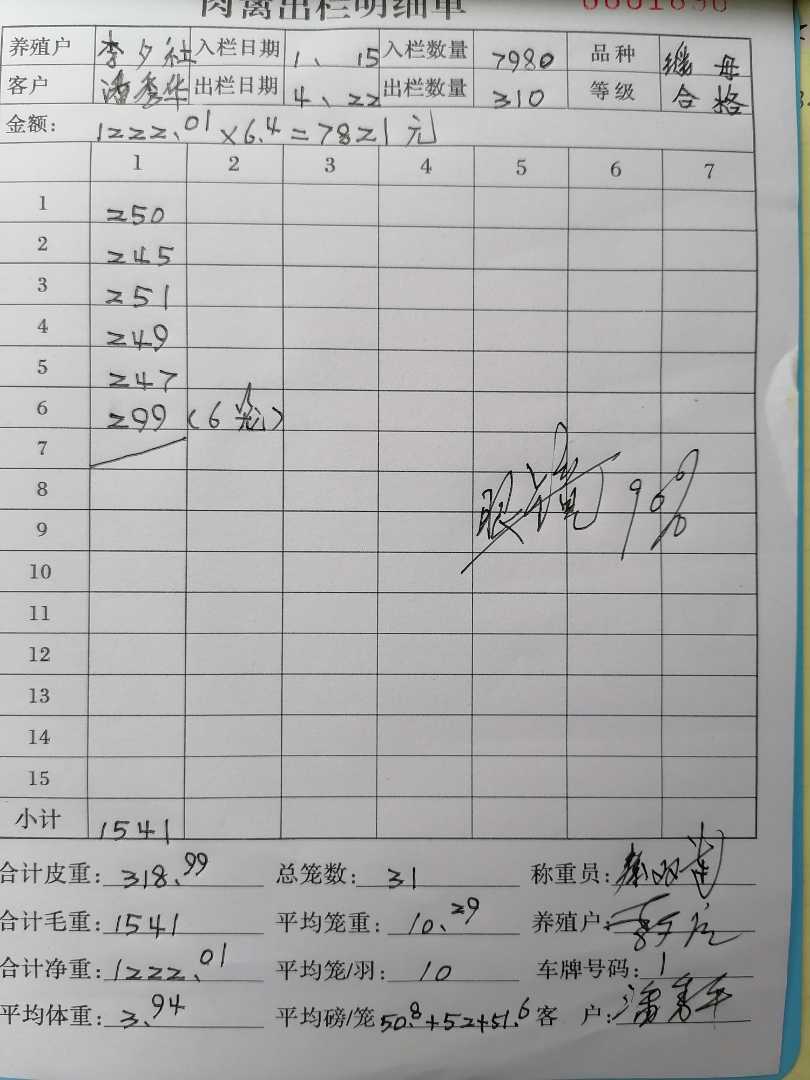 肉禽出栏明细单 0001890
养殖户 李夕社 入栏日期 1、15 入栏数量 7980 品种
客户 潘秀华 出栏日期 4、22 出栏数量 310 等级 合格
金额: 1222.01×6.4=7821元
1 2 3 4 5 6 7
1 250
2 245
3 251
4 249
5 247
6 299 (6笼)
7
8
9 90%
10
11
12
13
14
15
小计 1541
合计皮重: 318.99 总笼数: 31 称重员:
合计毛重: 1541 平均笼重: 10.29 养殖户:
合计净重: 1222.01 平均笼/羽: 10 车牌号码: 1
平均体重: 3.94 平均磅/笼 50.8+52+51.6 客 户: 潘秀华